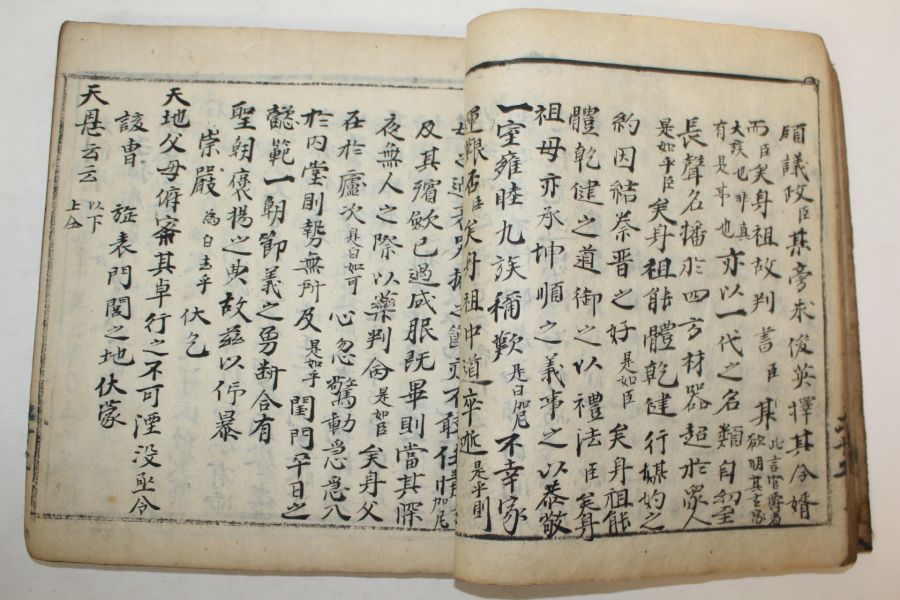 領議政臣某旁求俊英擇其令婿
而臣矣身祖故判書臣某
大發也非真有是事也亦以一代之名類自初至
長聲名播於四方材器超於衆人
是如乎臣矣身祖能體乾健行媒妁之
約因結秦晋之好是如臣矣身祖能
體乾健之道御之以禮法臣矣身
祖母亦承坤順之義事之以恭敬
一室雍睦九族稱歎是白加尼不幸家
運艱否臣矣身祖中道卒逝是乎則
及其殯斂已過成服旣畢則當其深
夜無人之際以藥判命是如臣矣身父
在於廬次是白如可心忽驚動急急入
於內堂則勢無所及是如乎閨門平日之
懿範一朝節義之勇斷合有
聖朝褒揚之典故玆以仰暴
崇嚴爲白去乎伏乞
天地父母俯察其卓行之不可湮没亟令
該曹旌表門閭之地伏蒙
天恩云云以下上仝